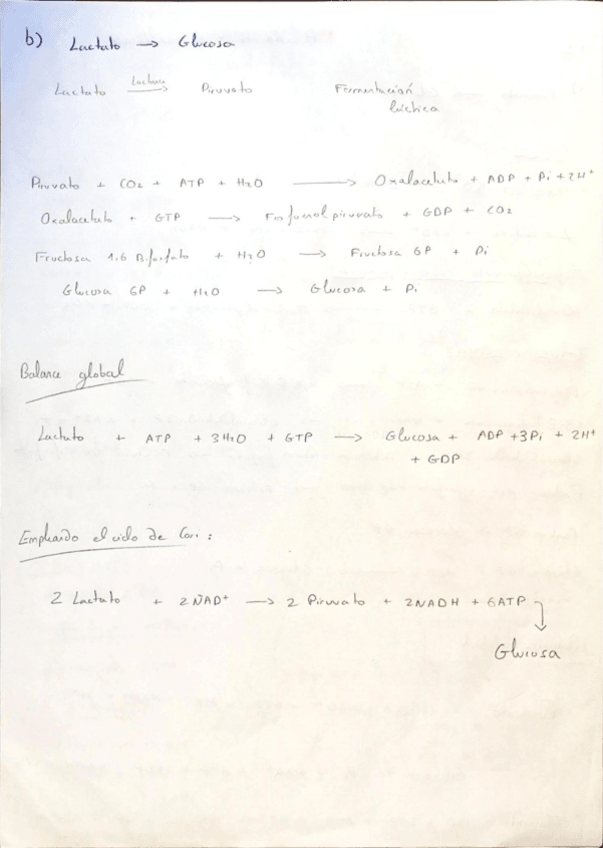 b) Lactato → Glucosa
Lactato → Piruvato Fermentación
láctica
Piruvato + CO2 + ATP + H2O → Oxalacetato + ADP + Pi + 2H+
Oxalacetato + GTP → Fosfoenol piruvato + GDP + CO2
Fructosa 1,6 Bifosfato + H2O → Fructosa 6P + Pi
Glucosa 6P + H2O → Glucosa + Pi
Balance global
Lactato + ATP + 3H2O + GTP → Glucosa + ADP + 3Pi + 2H+
+ GDP
Empleando el ciclo de Cori:
2 Lactato + 2NAD+ → 2 Piruvato + 2NADH + 6ATP
Glucosa